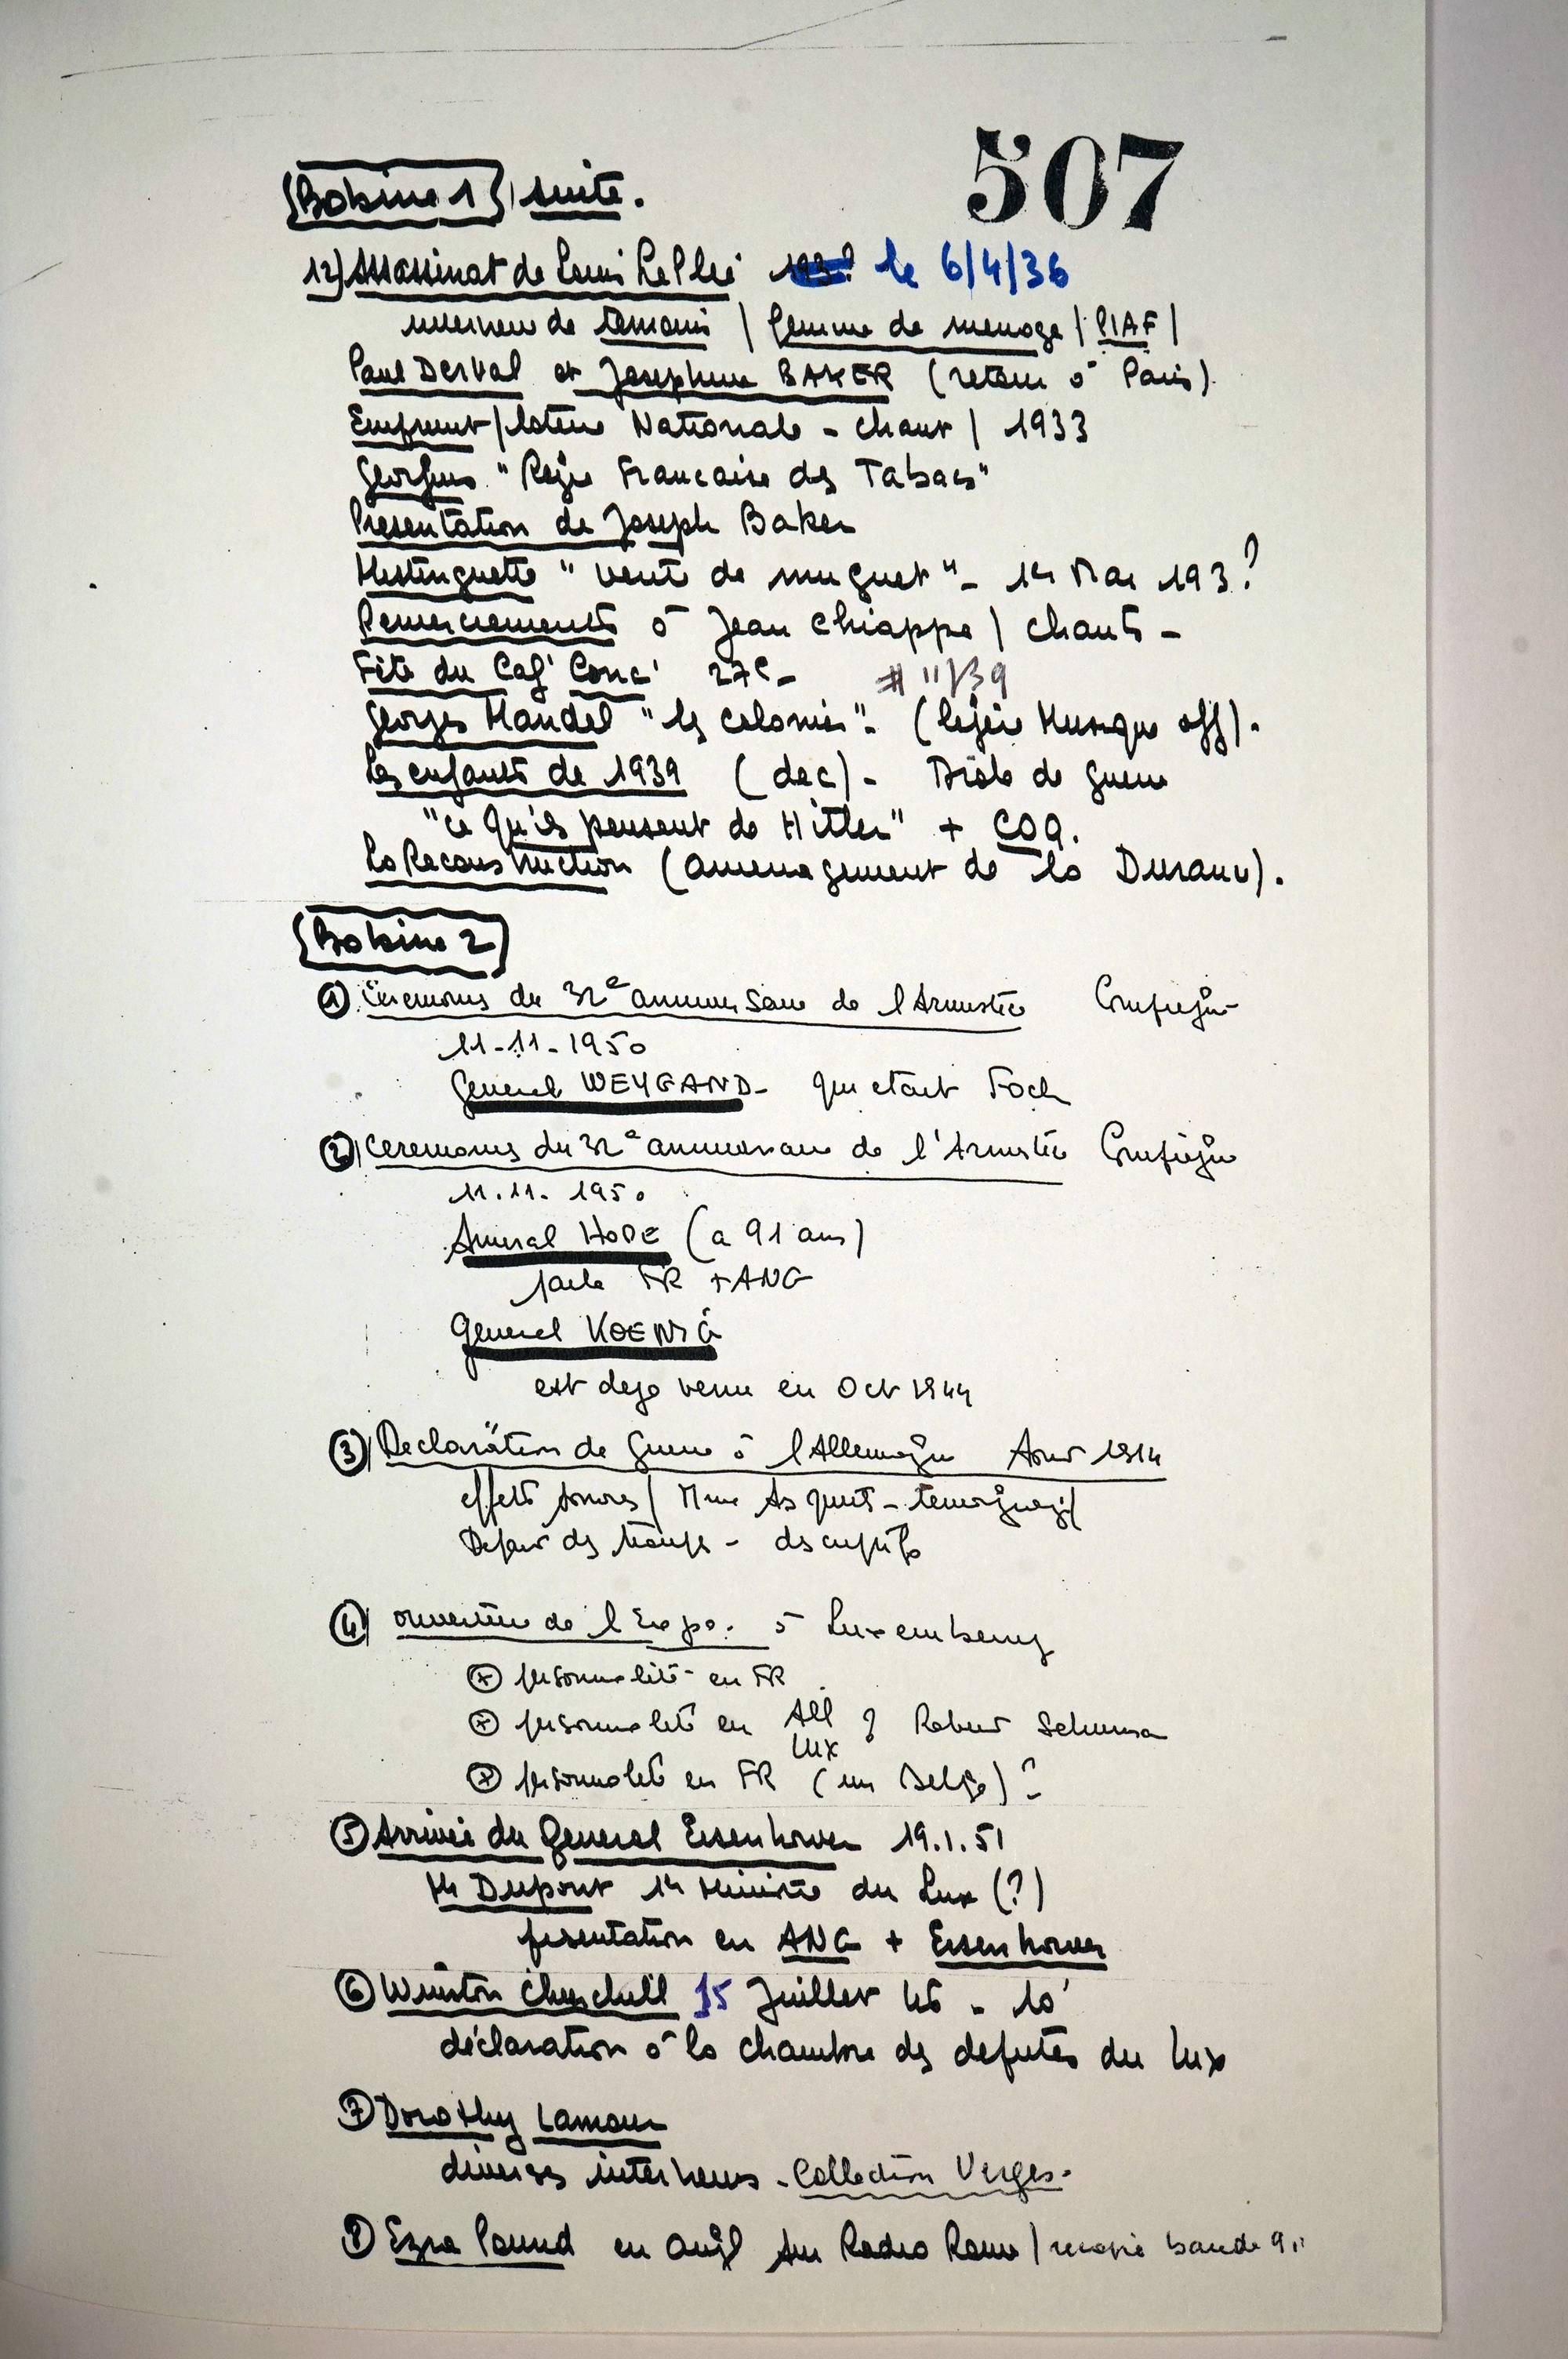 507
Bobine 1 suite.
12) Assassinat de Louis Leplée le 6/4/36
interview de temoins / femme de menage / PIAF /
Paul DERVAL et Josephine BAKER (retour à Paris).
Emprunt / loterie Nationale - chant / 1933
Georgius "Regie Francaise des Tabacs"
Presentation de Joseph Baker
Mistinguette "vente de muguet" - 1er Mai 193?
Remerciements à Jean Chiappe / chants -
Fête du Caf' Conc' 27e - # 11/39
Georges Mandel "les colonies" - (légère Musique off).
Les enfants de 1939 (dec) - Drole de guerre
"ce qu'ils pensent de Hitler" + COQ.
La Reconstruction (amenagement de la Durance).
Bobine 2
1) Ceremonies du 32e anniversaire de l'Armistice Compiègne
11-11-1950
General WEYGAND - qui etait Foch
2) Ceremonies du 32e anniversaire de l'Armistice Compiègne
11.11.1950
Amiral HOPE (a 91 ans)
parle FR + ANG
General KOENIG
est deja venu en Oct 1944
3) Declaration de Guerre à l'Allemagne Aout 1914
effets sonores / Mme Asquith - temoignage /
Depart des troupes - descriptifs
4) ouverture de l'Expo. à Luxembourg
personnalité en FR
personnalité en All Lux ? Robert Schuman
personnalité en FR (un Belge) ?
5) Arrivée du General Eisenhower 19.1.51
Mr Dupont 1er Ministre du Lux (?)
presentation en ANG + Eisenhower
6) Winston Churchill 15 Juillet 46 - 10'
déclaration à la chambre des deputés du Lux
7) Dorothy Lamour
diverses interviews - Collection Verges -
8) Ezra Pound en angl sur Radio Rome / recopié bande 911